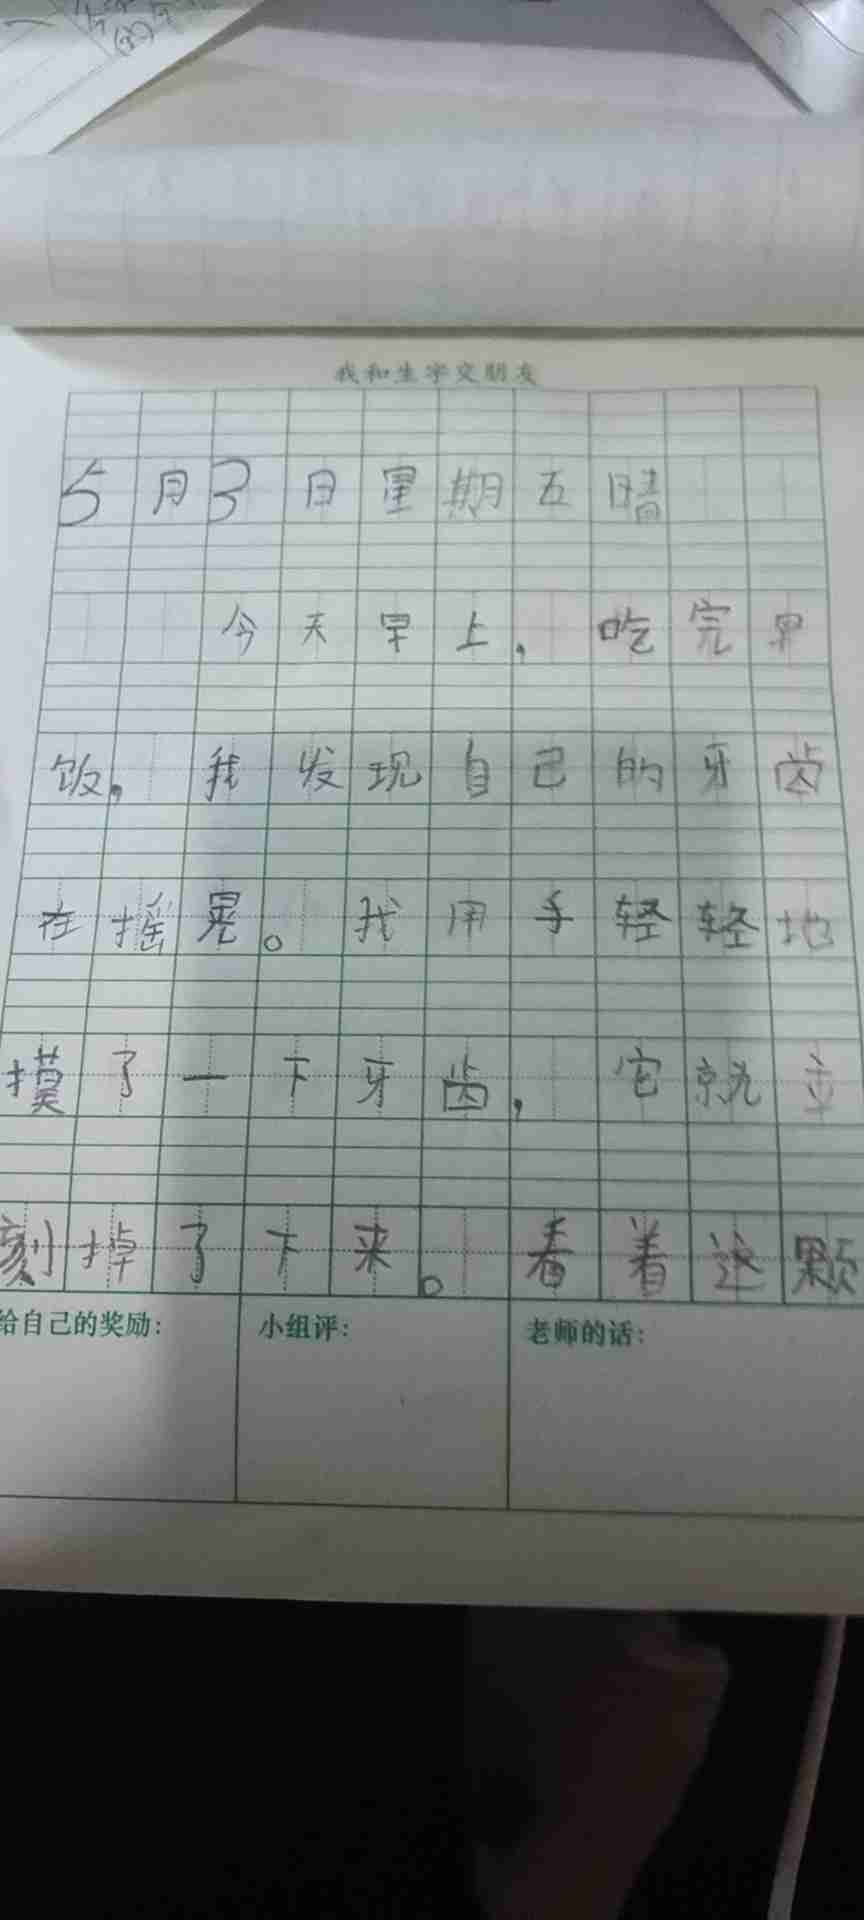 我和生字交朋友
5月3日星期五晴
今天早上，吃完早
饭，我发现自己的牙齿
在摇晃。我用手轻轻地
摸了一下牙齿，它就立
刻掉了下来。看着这颗
给自己的奖励：
小组评：
老师的话：